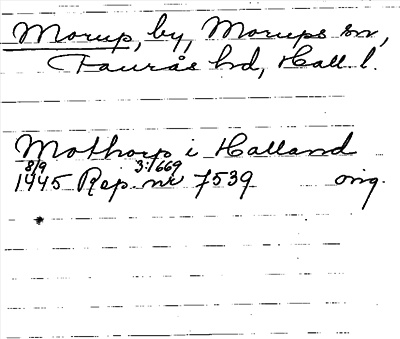 Morup, by, Morups sn,
Faurås hd, Hall. l.
Mothorp i Halland
8/9 3:1669
1445 Rep. nr 7539 orig.